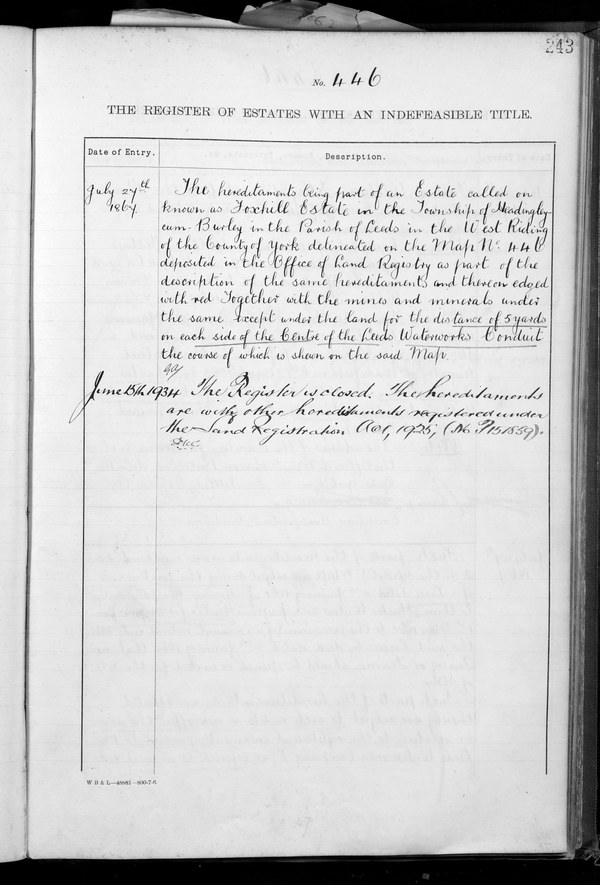 243
No. 446
THE REGISTER OF ESTATES WITH AN INDEFEASIBLE TITLE.
Date of Entry.
Description.
July 27th
1867.
The hereditaments being part of an Estate called or
known as Foxhill Estate in the Township of Headingley
cum-Burley in the Parish of Leeds in the West Riding
of the County of York delineated on the Map No. 446
deposited in the Office of Land Registry as part of the
description of the same hereditaments and thereon edged
with red Together with the mines and minerals under
the same except under the land for the distance of 5 yards
on each side of the Centre of the Leeds Waterworks Conduit
the course of which is shewn on the said Map.
June 15th, 1934
The Register is closed. The hereditaments
are with other hereditaments registered under
the Land Registration Act, 1925, (No. P151839).
W B & L—48881—800-7-6